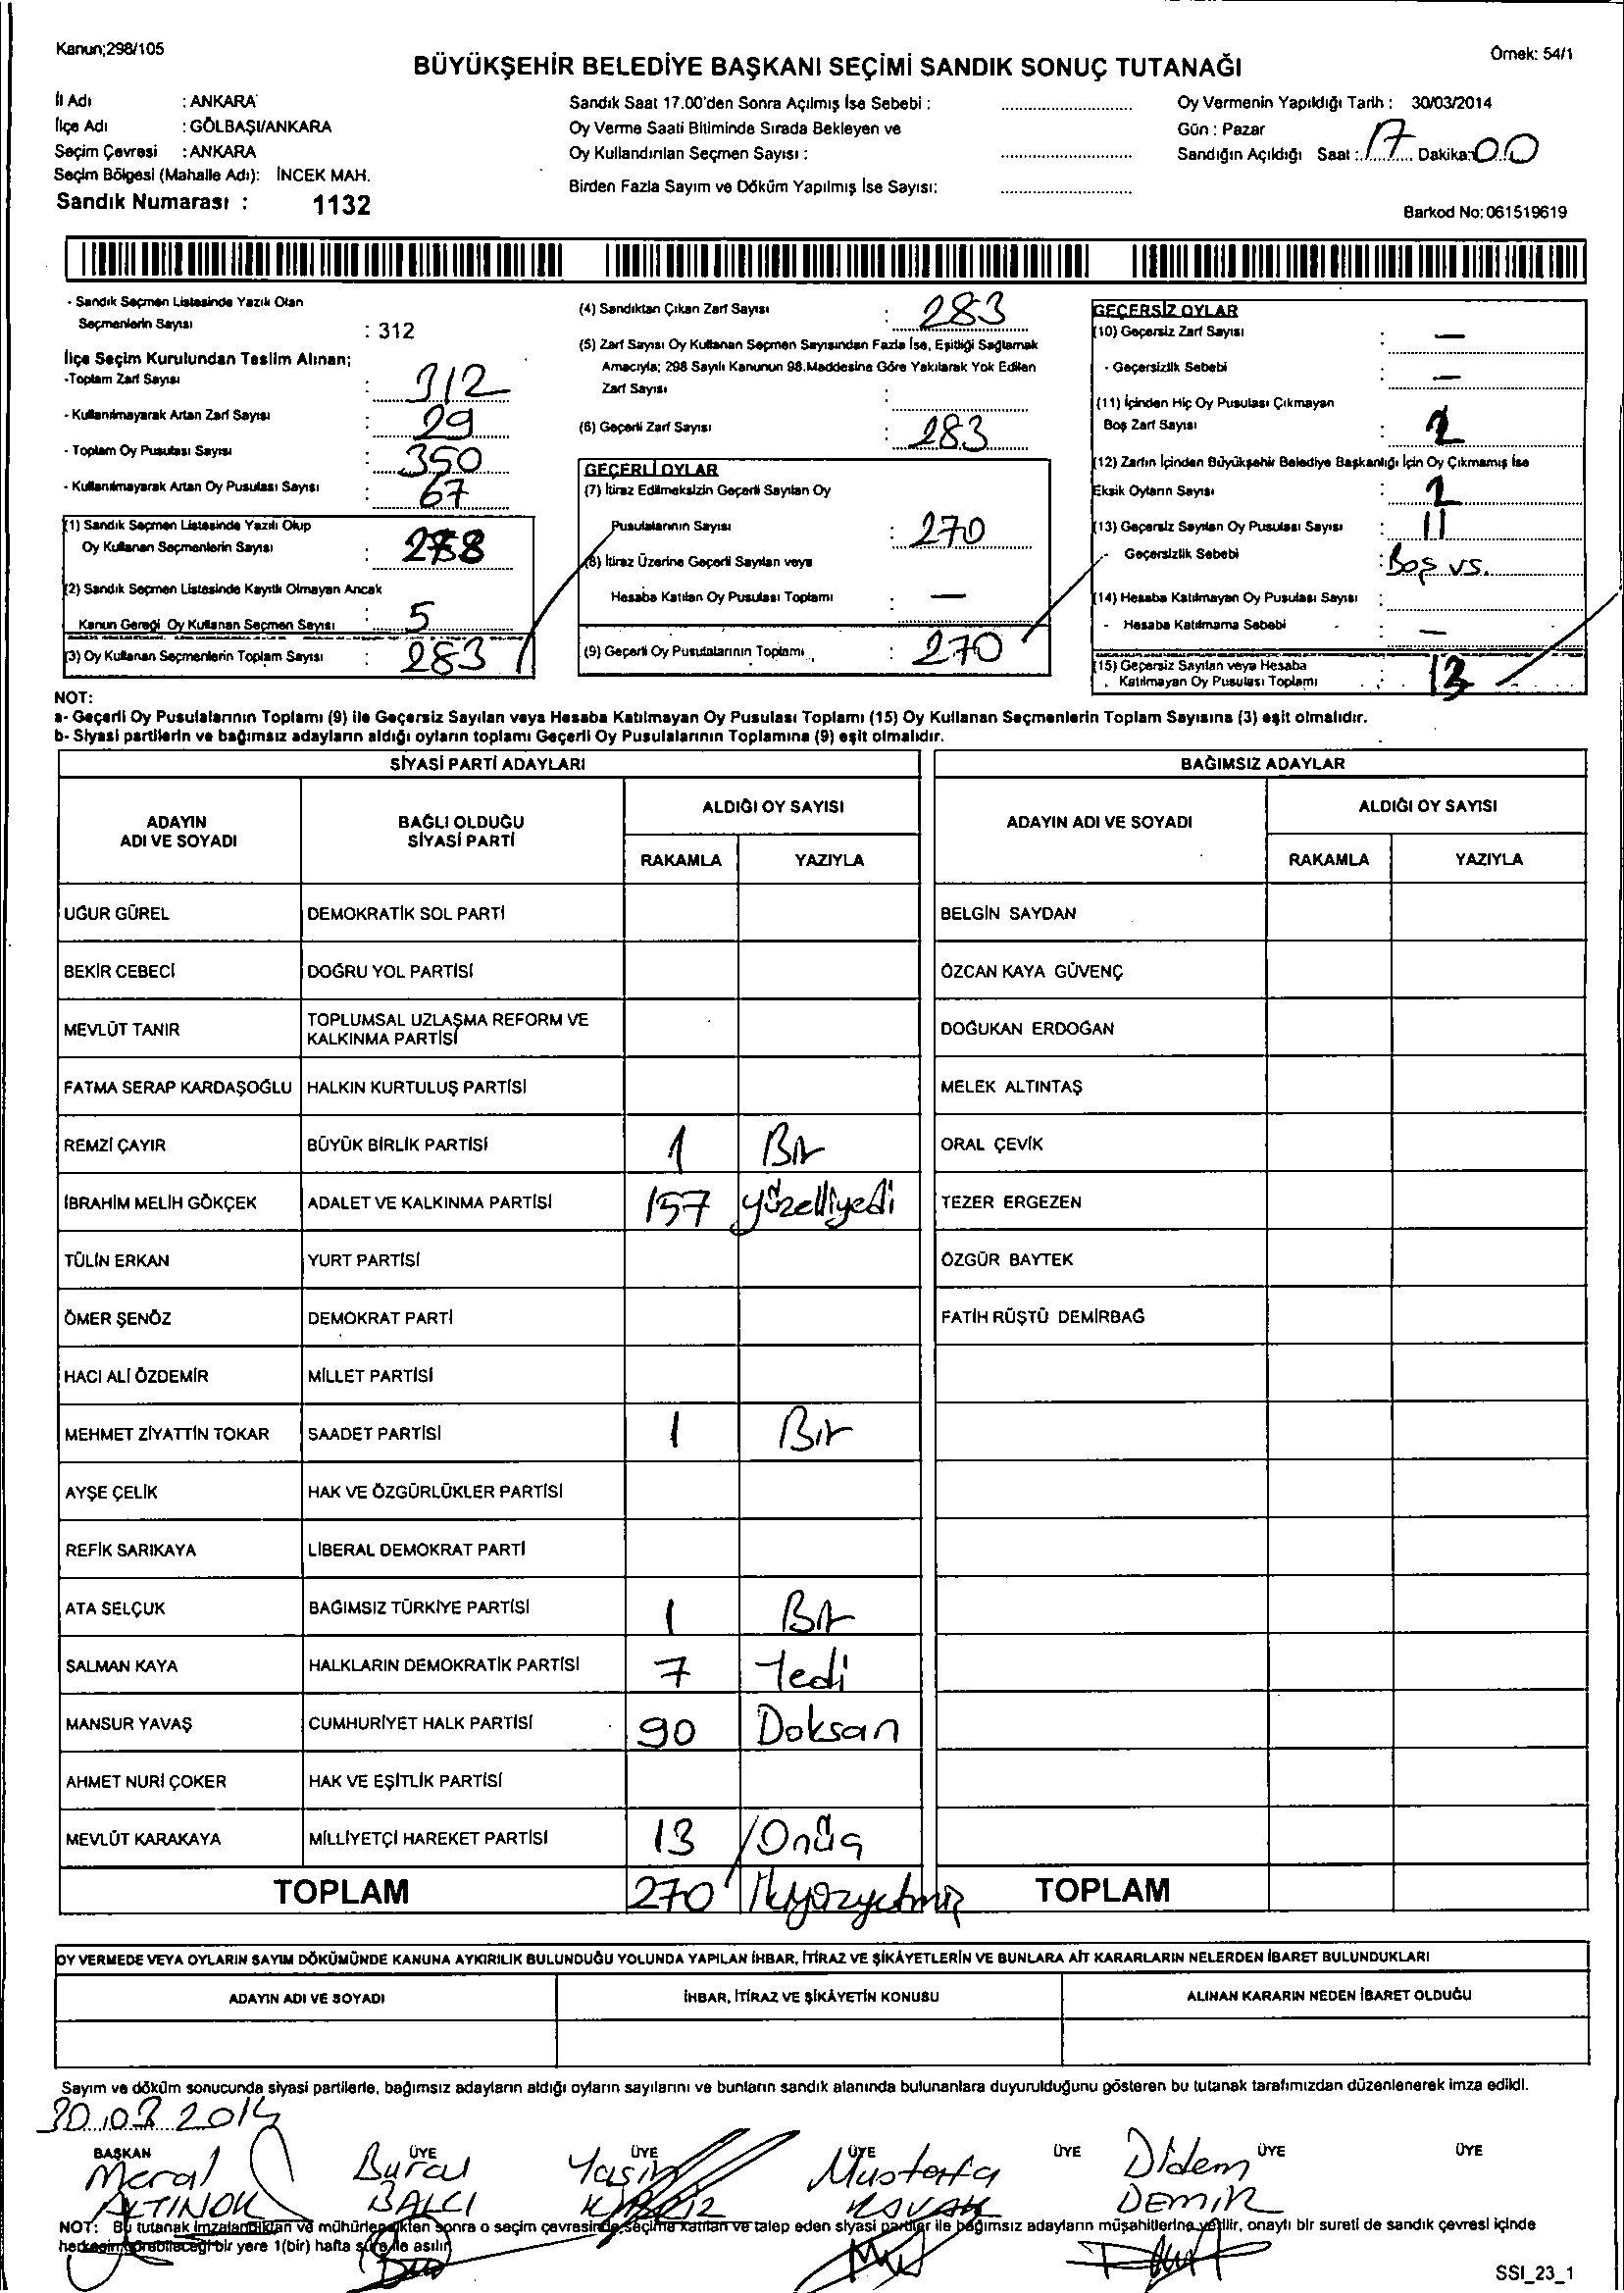 Kanun;298/105
Örnek: 54/1
BÜYÜKŞEHİR BELEDİYE BAŞKANI SEÇİMİ SANDIK SONUÇ TUTANAĞI
İl Adı : ANKARA
İlçe Adı : GÖLBAŞI/ANKARA
Seçim Çevresi : ANKARA
Seçim Bölgesi (Mahalle Adı): İNCEK MAH.
Sandık Numarası : 1132
Sandık Saat 17.00'den Sonra Açılmış İse Sebebi :
Oy Verme Saati Bitiminde Sırada Bekleyen ve
Oy Kullandırılan Seçmen Sayısı :
Birden Fazla Sayım ve Döküm Yapılmış İse Sayısı:
Oy Vermenin Yapıldığı Tarih : 30/03/2014
Gün : Pazar
Sandığın Açıldığı Saat : 17 Dakika: 00
Barkod No: 061519619
- Sandık Seçmen Listesinde Yazılı Olan
Seçmenlerin Sayısı : 312
İlçe Seçim Kurulundan Teslim Alınan;
-Toplam Zarf Sayısı : 312
- Kullanılmayarak Artan Zarf Sayısı : 29
- Toplam Oy Pusulası Sayısı : 350
- Kullanılmayarak Artan Oy Pusulası Sayısı : 67
(1) Sandık Seçmen Listesinde Yazılı Olup
Oy Kullanan Seçmenlerin Sayısı : 278
(2) Sandık Seçmen Listesinde Kayıtlı Olmayan Ancak
Kanun Gereği Oy Kullanan Seçmen Sayısı : 5
(3) Oy Kullanan Seçmenlerin Toplam Sayısı : 283
(4) Sandıktan Çıkan Zarf Sayısı : 283
(5) Zarf Sayısı Oy Kullanan Seçmen Sayısından Fazla İse, Eşitliği Sağlamak
Amacıyla; 298 Sayılı Kanunun 98.Maddesine Göre Yakılarak Yok Edilen
Zarf Sayısı :
(6) Geçerli Zarf Sayısı : 283
GEÇERLİ OYLAR
(7) İtiraz Edilmeksizin Geçerli Sayılan Oy
Pusulalarının Sayısı : 270
(8) İtiraz Üzerine Geçerli Sayılan veya
Hesaba Katılan Oy Pusulası Toplamı : —
(9) Geçerli Oy Pusulalarının Toplamı : 270
GEÇERSİZ OYLAR
(10) Geçersiz Zarf Sayısı : —
- Geçersizlik Sebebi : —
(11) İçinden Hiç Oy Pusulası Çıkmayan
Boş Zarf Sayısı : 2
(12) Zarfın İçinden Büyükşehir Belediye Başkanlığı İçin Oy Çıkmamış İse
Eksik Oyların Sayısı :
(13) Geçersiz Sayılan Oy Pusulası Sayısı : 11
- Geçersizlik Sebebi : Boş vs.
(14) Hesaba Katılmayan Oy Pusulası Sayısı :
- Hesaba Katılmama Sebebi : —
(15) Geçersiz Sayılan veya Hesaba
Katılmayan Oy Pusulası Toplamı : 13
NOT:
a- Geçerli Oy Pusulalarının Toplamı (9) ile Geçersiz Sayılan veya Hesaba Katılmayan Oy Pusulası Toplamı (15) Oy Kullanan Seçmenlerin Toplam Sayısına (3) eşit olmalıdır.
b- Siyasi partilerin ve bağımsız adayların aldığı oyların toplamı Geçerli Oy Pusulalarının Toplamına (9) eşit olmalıdır.
SİYASİ PARTİ ADAYLARI BAĞIMSIZ ADAYLAR
ADAYIN ADI VE SOYADI BAĞLI OLDUĞU SİYASİ PARTİ ALDIĞI OY SAYISI RAKAMLA YAZIYLA ADAYIN ADI VE SOYADI ALDIĞI OY SAYISI RAKAMLA YAZIYLA
UĞUR GÜREL DEMOKRATİK SOL PARTİ BELGİN SAYDAN
BEKİR CEBECİ DOĞRU YOL PARTİSİ ÖZCAN KAYA GÜVENÇ
MEVLÜT TANIR TOPLUMSAL UZLAŞMA REFORM VE KALKINMA PARTİSİ DOĞUKAN ERDOĞAN
FATMA SERAP KARDAŞOĞLU HALKIN KURTULUŞ PARTİSİ MELEK ALTINTAŞ
REMZİ ÇAYIR BÜYÜK BİRLİK PARTİSİ 1 Bir ORAL ÇEVİK
İBRAHİM MELİH GÖKÇEK ADALET VE KALKINMA PARTİSİ 157 yüzelliyedi TEZER ERGEZEN
TÜLİN ERKAN YURT PARTİSİ ÖZGÜR BAYTEK
ÖMER ŞENÖZ DEMOKRAT PARTİ FATİH RÜŞTÜ DEMİRBAĞ
HACI ALİ ÖZDEMİR MİLLET PARTİSİ
MEHMET ZİYATTİN TOKAR SAADET PARTİSİ 1 Bir
AYŞE ÇELİK HAK VE ÖZGÜRLÜKLER PARTİSİ
REFİK SARIKAYA LİBERAL DEMOKRAT PARTİ
ATA SELÇUK BAĞIMSIZ TÜRKİYE PARTİSİ 1 Bir
SALMAN KAYA HALKLARIN DEMOKRATİK PARTİSİ 7 Yedi
MANSUR YAVAŞ CUMHURİYET HALK PARTİSİ 90 Doksan
AHMET NURİ ÇOKER HAK VE EŞİTLİK PARTİSİ
MEVLÜT KARAKAYA MİLLİYETÇİ HAREKET PARTİSİ 13 Onüç
TOPLAM 270 İkiyüzyetmiş TOPLAM
OY VERMEDE VEYA OYLARIN SAYIM DÖKÜMÜNDE KANUNA AYKIRILIK BULUNDUĞU YOLUNDA YAPILAN İHBAR, İTİRAZ VE ŞİKÂYETLERİN VE BUNLARA AİT KARARLARIN NELERDEN İBARET BULUNDUKLARI
ADAYIN ADI VE SOYADI İHBAR, İTİRAZ VE ŞİKÂYETİN KONUSU ALINAN KARARIN NEDEN İBARET OLDUĞU
Sayım ve döküm sonucunda siyasi partilerle, bağımsız adayların aldığı oyların sayılarını ve bunların sandık alanında bulunanlara duyurulduğunu gösteren bu tutanak tarafımızdan düzenlenerek imza edildi.
30.03.2014
BAŞKAN ÜYE ÜYE ÜYE ÜYE ÜYE ÜYE
Meral Burcu Yasin Mustafa Didem
ALTINOK BALCI KAVAK DEMİR
NOT: Bu tutanak imzalandıktan ve mühürlendikten sonra o seçim çevresinde seçime katılan ve talep eden siyasi partiler ile bağımsız adayların müşahitlerine verilir, onaylı bir sureti de sandık çevresi içinde
herkesin görebileceği bir yere 1(bir) hafta süre ile asılır.
SSI_23_1